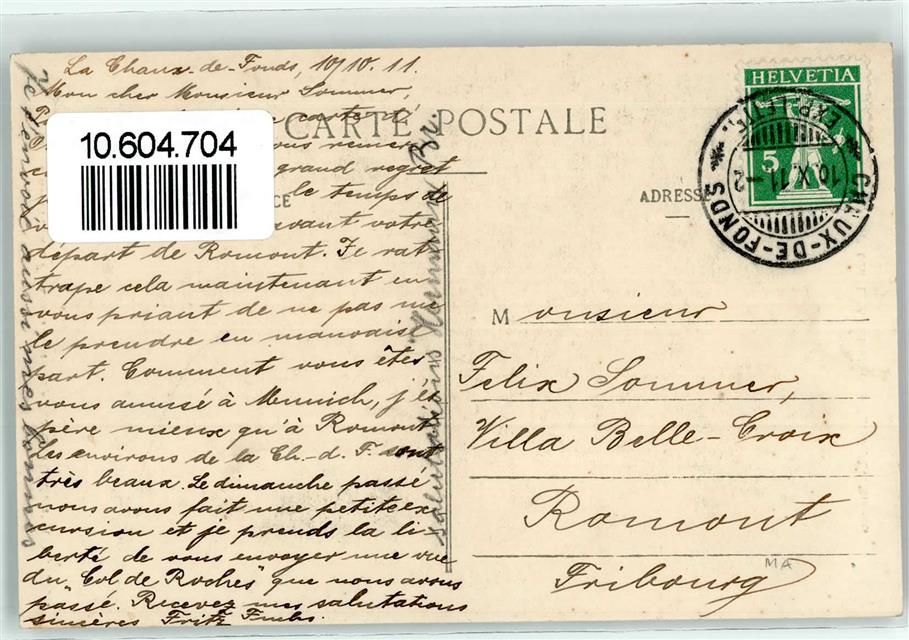 La Chaux-de-Fonds, 10/10. 11.
Mon cher Monsieur Sommer,
carte d'
vous remer
grand regret
le temps de
avant votre
départ de Romont. Je rat
trape cela maintenant en
vous priant de ne pas me
le prendre en mauvaise
part. Comment vous êtes
vous amusé à Munich, j'es
père mieux qu'à Romont.
Les environs de la Ch.-d. F. sont
très beaux. Le dimanche passé
nous avons fait une petite ex
cursion et je prends la li
berté de vous envoyer une vue
du "Col de Roches" que nous avons
passé. Recevez mes salutations
sincères Fritz Fuchs.
Je vous aussi mes bonnes
salutations Hermann Br.
10.604.704
CARTE POSTALE
CE
ADRESSE
HELVETIA
5
CHAUX-DE-FONDS
EXP. LETTR.
10.X.11.-2
Monsieur
Felix Sommer,
Villa Belle-Croix
Romont
Fribourg
MA